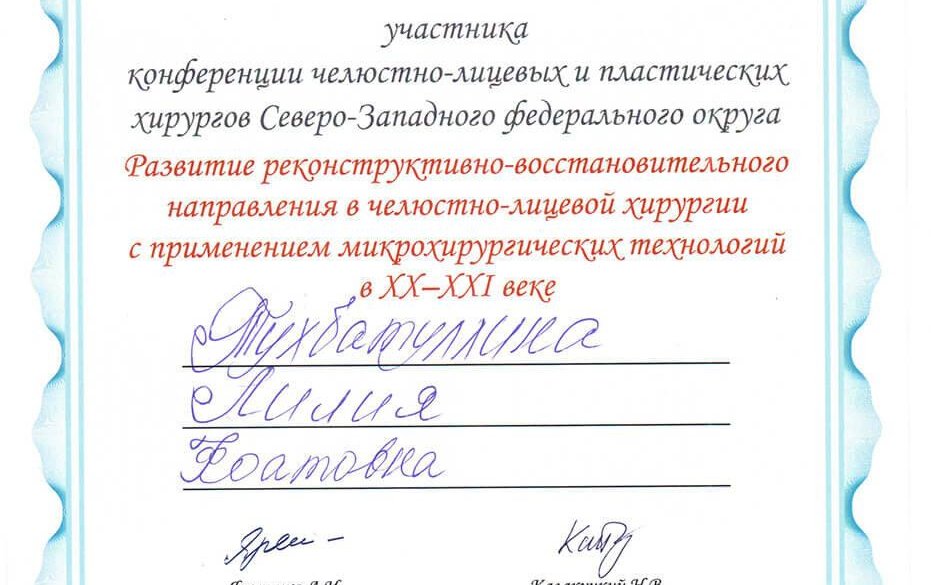 участника
конференции челюстно-лицевых и пластических
хирургов Северо-Западного федерального округа
Развитие реконструктивно-восстановительного
направления в челюстно-лицевой хирургии
с применением микрохирургических технологий
в XX–XXI веке
Тухбатуллина
Лилия
Фоатовна